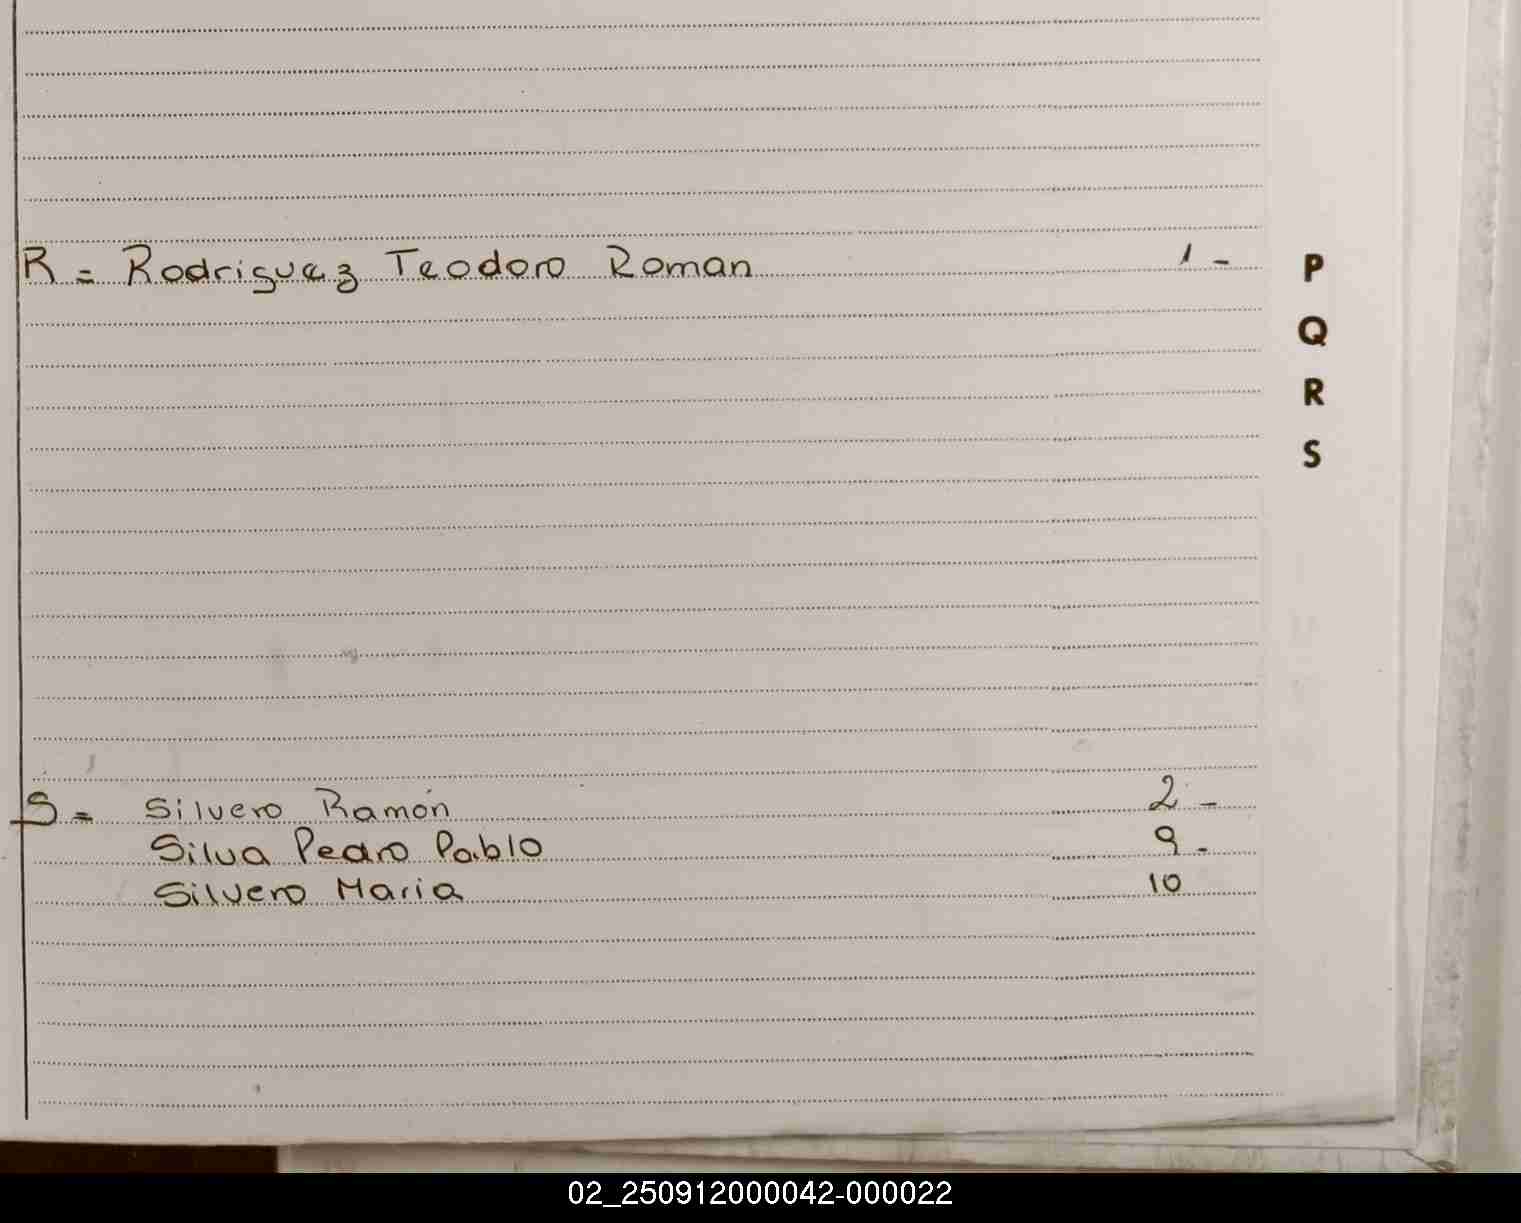 R = Rodriguez Teodoro Roman 1 -
P
Q
R
S
S = Silvero Ramón 2 -
Silva Pedro Pablo 9 -
Silvero Maria 10
02_250912000042-000022